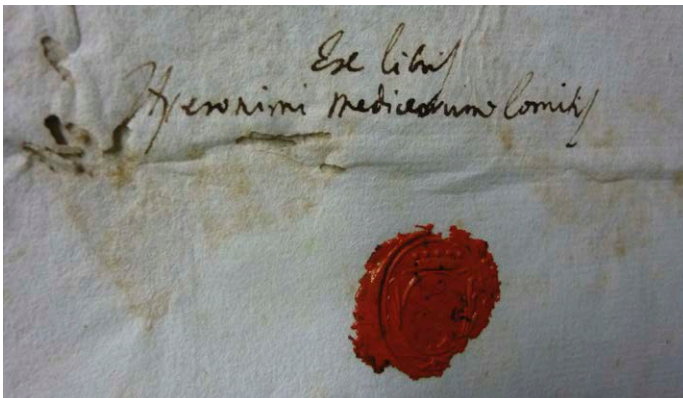 Ex libris
Hyeronimi Mediceorum Comitis